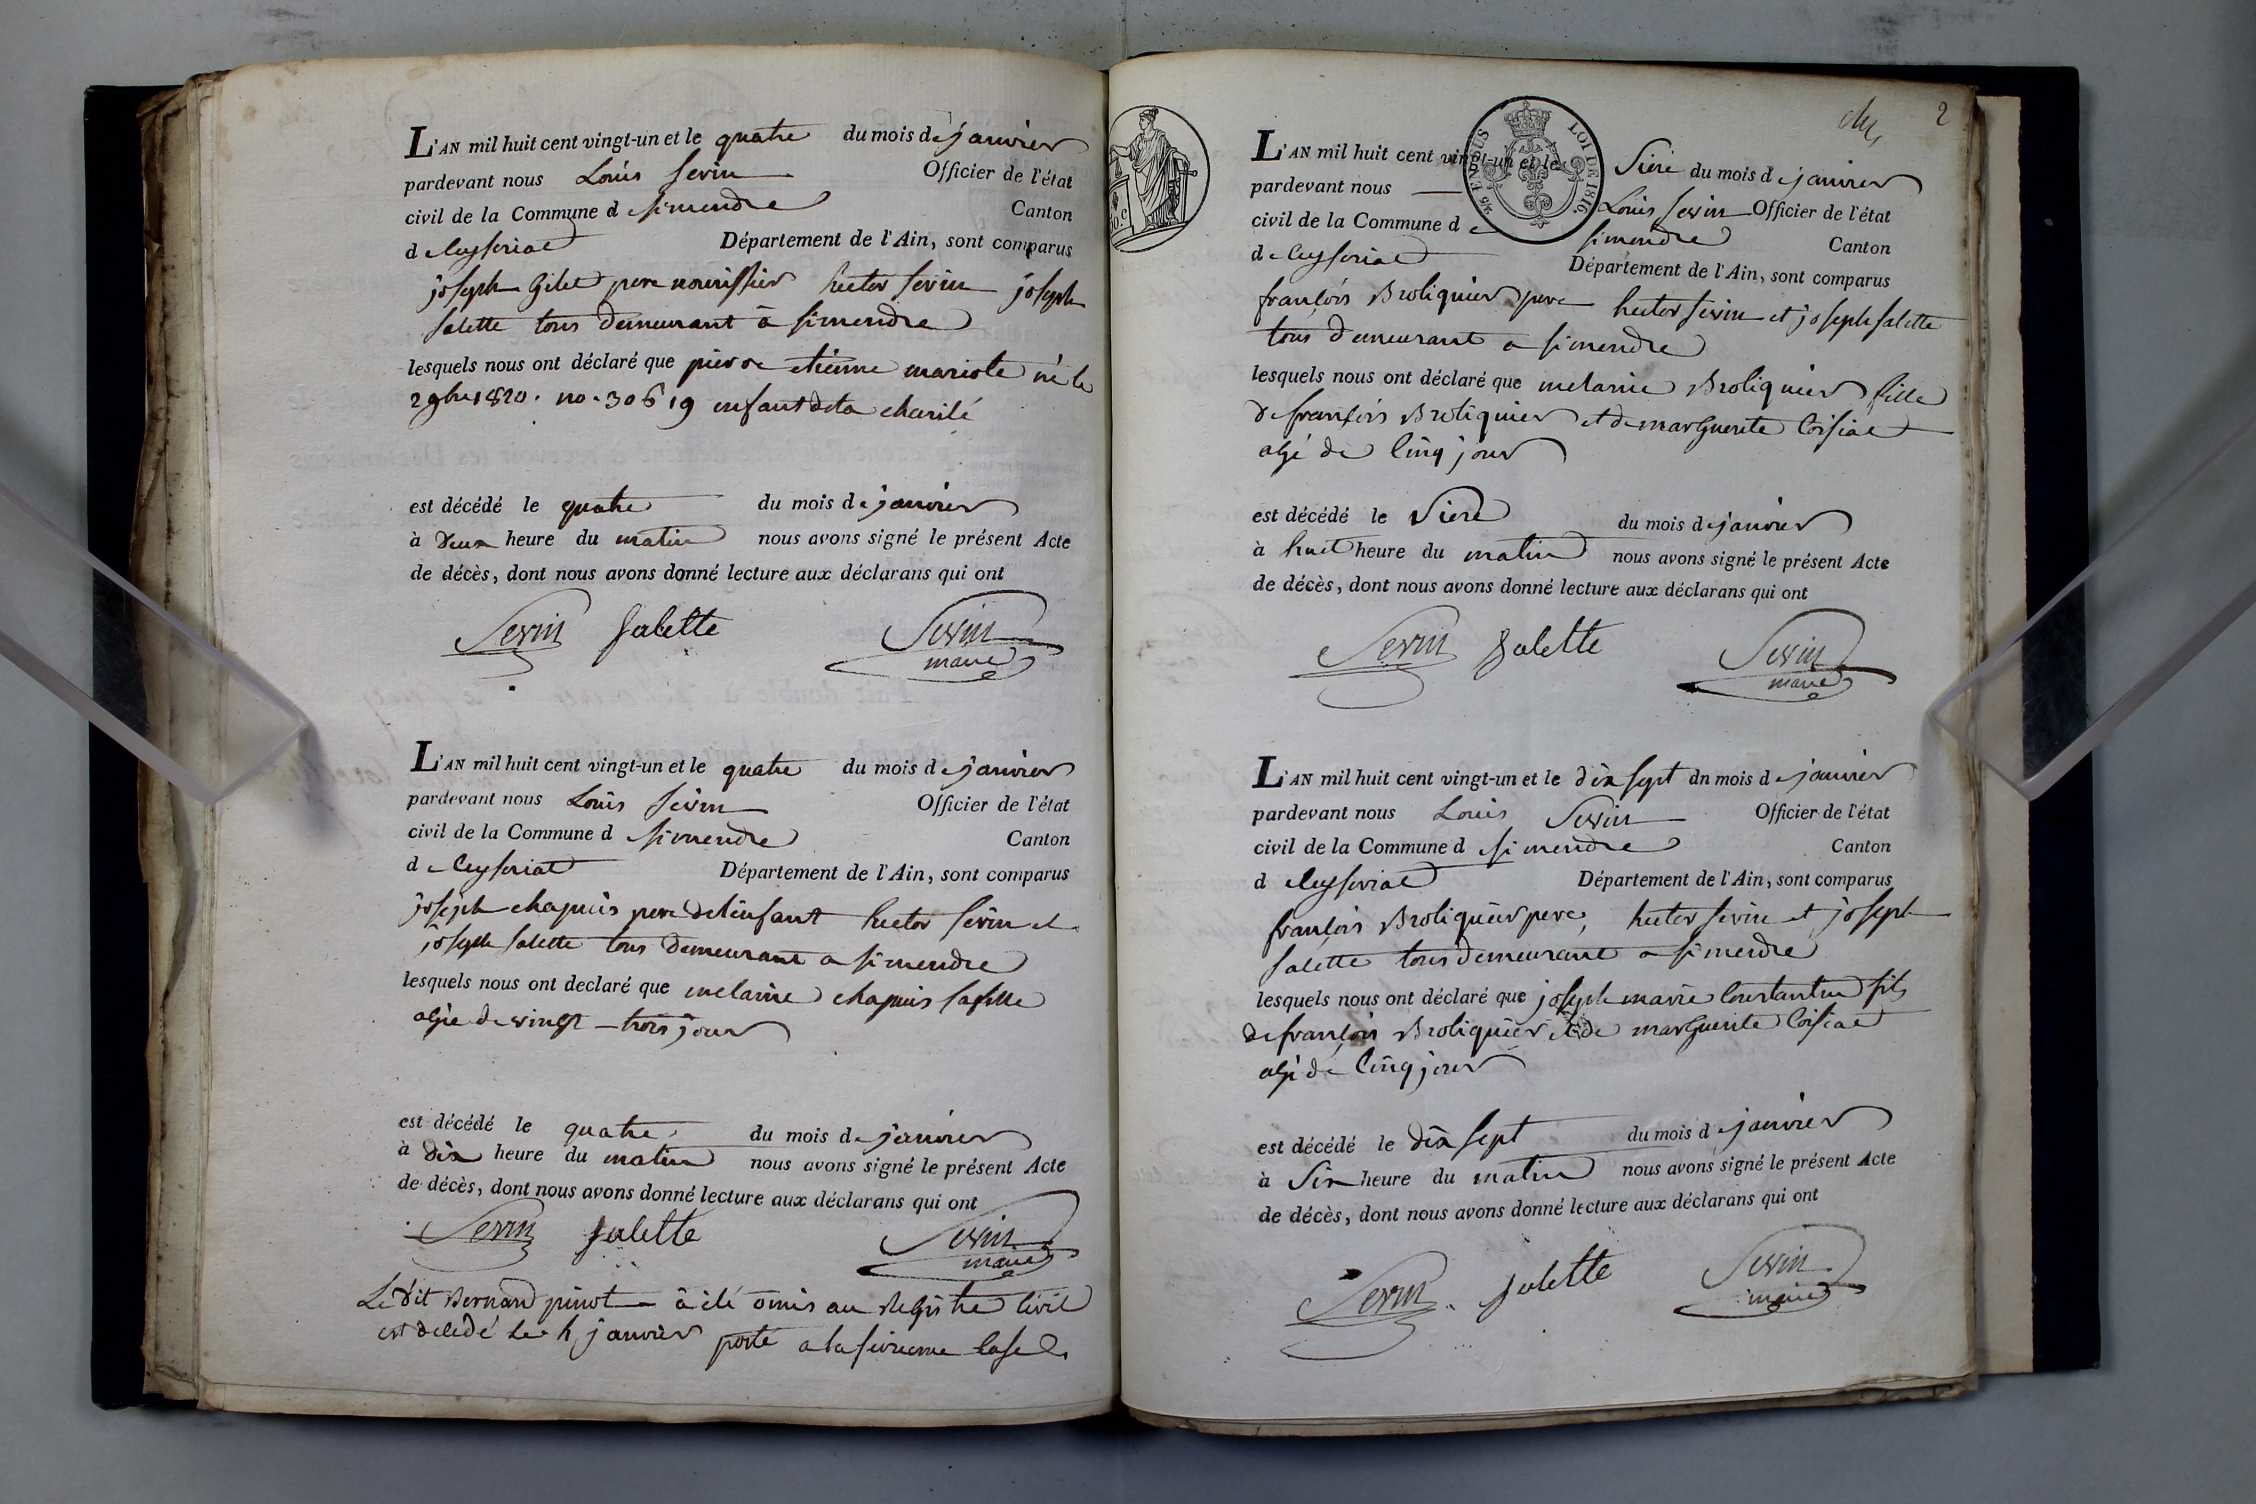 L'AN mil huit cent vingt-un et le quatre du mois de janvier
pardevant nous Louis Sevin Officier de l'état
civil de la Commune d Simendre Canton
de Ceyseriat Département de l'Ain, sont comparus
joseph Gilet pere nourissier hector sevin joseph
salette tous demeurant a simendre
lesquels nous ont déclaré que pierre etienne mariote né le
29bre 1820. no. 30619 enfant de la charité
est décédé le quatre du mois de janvier
à deux heure du matin nous avons signé le présent Acte
de décès, dont nous avons donné lecture aux déclarans qui ont
Sevin Salette Sevin
maire
L'AN mil huit cent vingt-un et le quatre du mois de janvier
pardevant nous Louis Sevin Officier de l'état
civil de la Commune d Simendre Canton
de Ceyseriat Département de l'Ain, sont comparus
joseph chapuis pere de lenfant hector sevin et
joseph salette tous demeurant a simendre
lesquels nous ont declaré que melanie chapuis sa fille
agée de vingt-trois jour
est décédé le quatre du mois de janvier
à dix heure du matin nous avons signé le présent Acte
de décès, dont nous avons donné lecture aux déclarans qui ont
Sevin Salette Sevin
maire
Le dit Bernard pinot a été omis au Registre Civil
est décédé le 4 janvier porté a la
2
L'AN mil huit cent vingt-un et le du mois de janvier
pardevant nous Louis Sevin Officier de l'état
civil de la Commune de simendre Canton
de Ceyseriat Département de l'Ain, sont comparus
LOI DE 1816
françois Broliquier pere hector sevin et joseph salette
tous demeurant a simendre
lesquels nous ont déclaré que melanie Broliquier fille
de françois Broliquier et de marguerite Coisiat
agé de cinq jour
est décédé le du mois de janvier
à huit heure du matin nous avons signé le présent Acte
de décès, dont nous avons donné lecture aux déclarans qui ont
Sevin Salette Sevin
maire
L'AN mil huit cent vingt-un et le dix sept dn mois de janvier
pardevant nous Louis Sevin Officier de l'état
civil de la Commune d Simendre Canton
d Ceyseriat Département de l'Ain, sont comparus
françois Broliquier pere, hector sevin et joseph
salette tous demeurant a simendre
lesquels nous ont déclaré que joseph marie Constantin fils
de françois Broliquier et de marguerite Coisiat
agé de cinq jour
est décédé le dix sept du mois d janvier
à Six heure du matin nous avons signé le présent Acte
de décès, dont nous avons donné lecture aux déclarans qui ont
Sevin Salette Sevin
maire